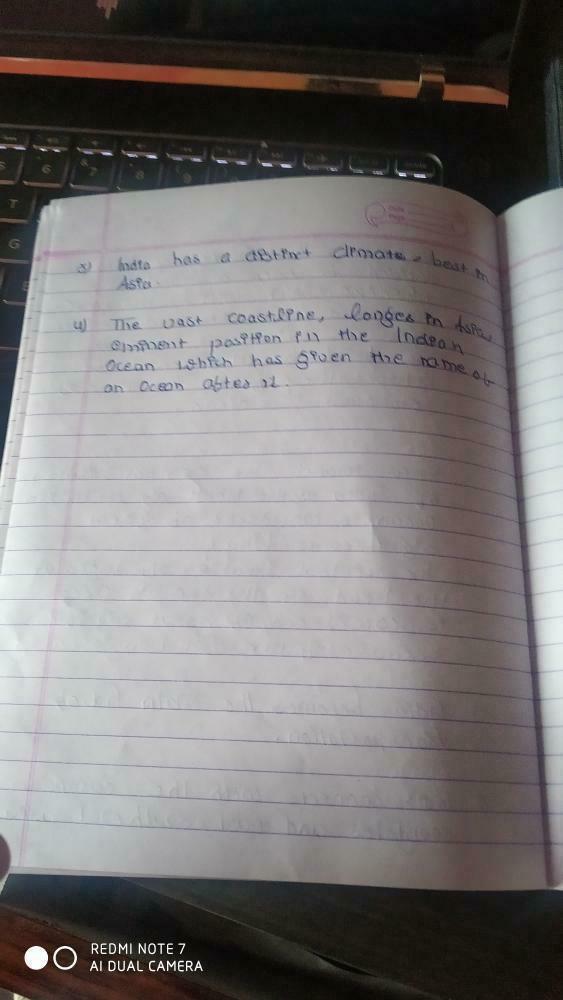 3) India has a distinct climate, best in
Asia.
4) The vast coastline, longes in Asia,
eminent position in the Indean
Ocean which has given the name of
an Ocean after it.
REDMI NOTE 7
AI DUAL CAMERA